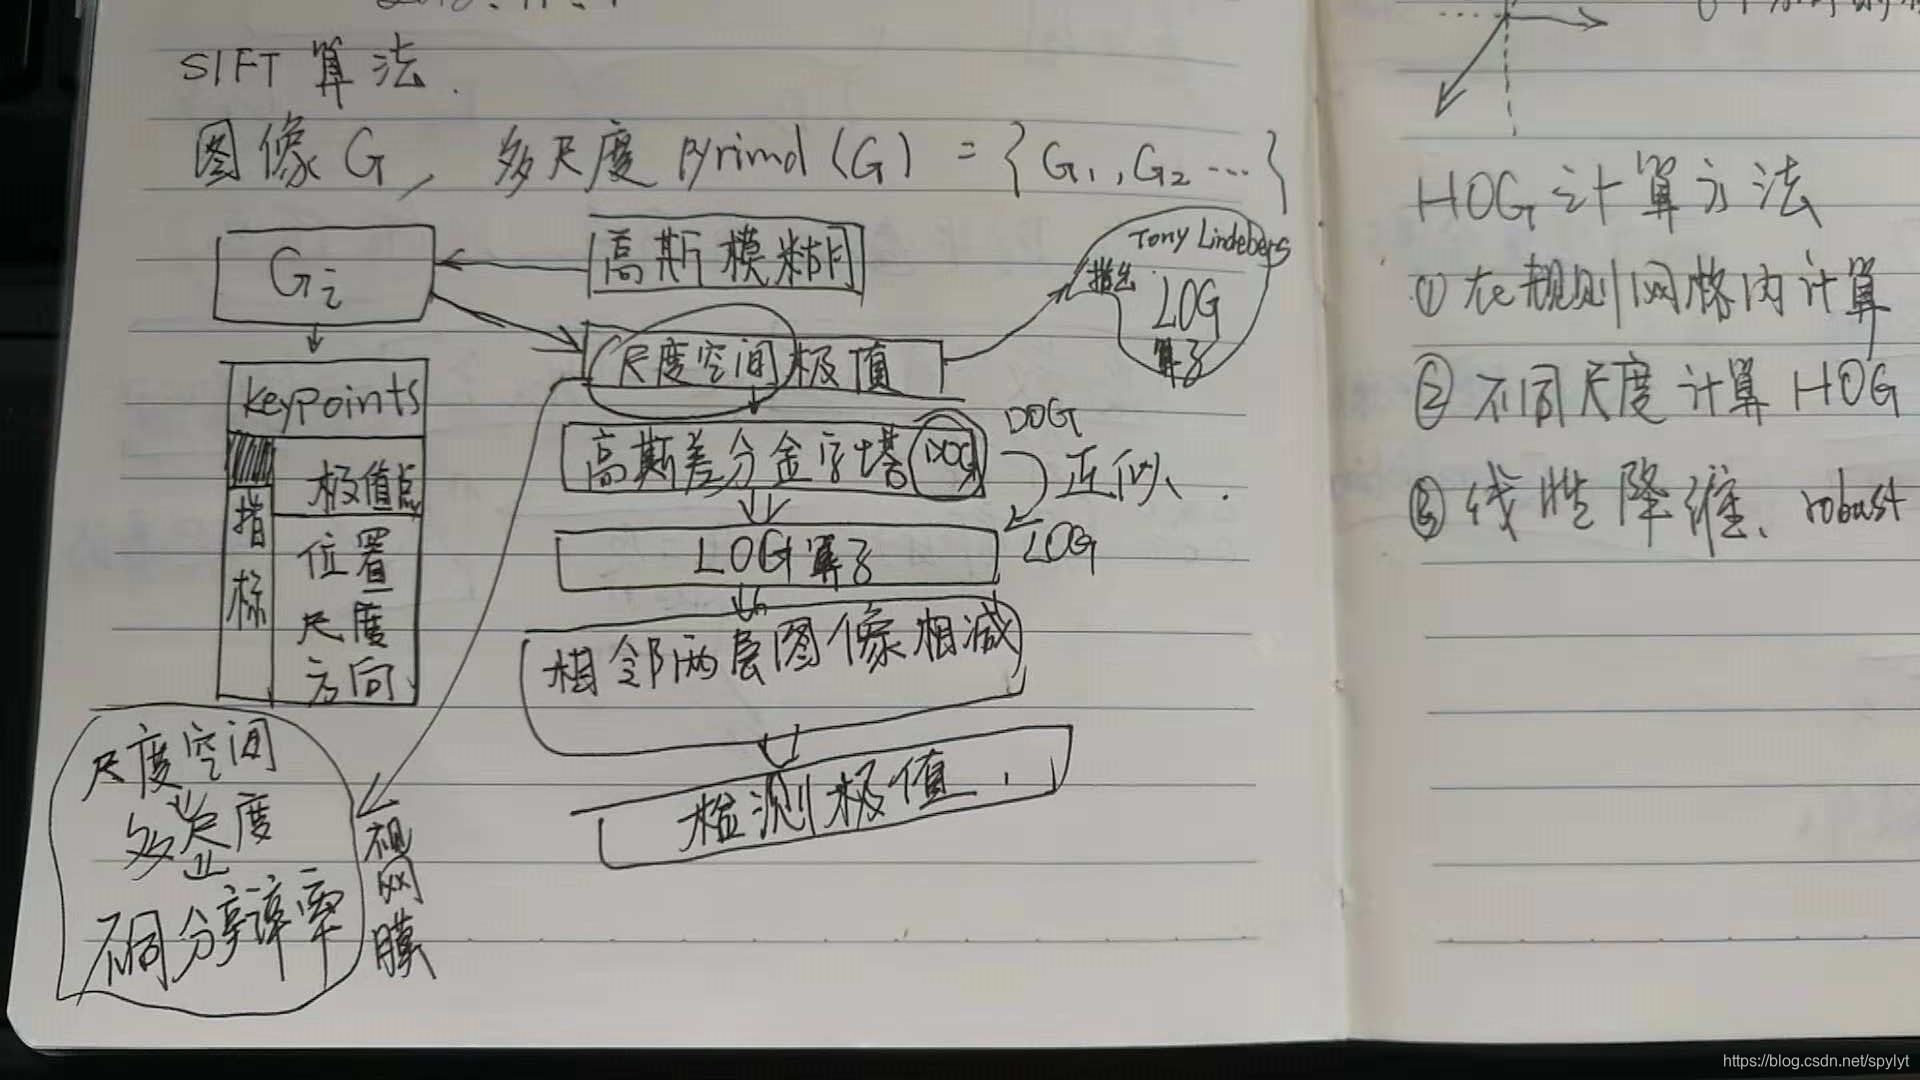 SIFT 算法.
图像 G, 多尺度 pyrimd (G) = { G1, G2 ... }
Gi
高斯模糊
Tony Lindeberg
指出
LOG
算子
尺度空间极值
keypoints
指标
极值点
位置
尺度
方向
高斯差分金字塔 DOG
DOG
近似
LOG
LOG算子
相邻两层图像相减
检测极值.
尺度空间
多尺度
不同分辩率
视网膜
HOG 计算方法
① 在规则网格内计算
② 不同尺度计算 HOG
③ 线性降维、robust
https://blog.csdn.net/spylyt